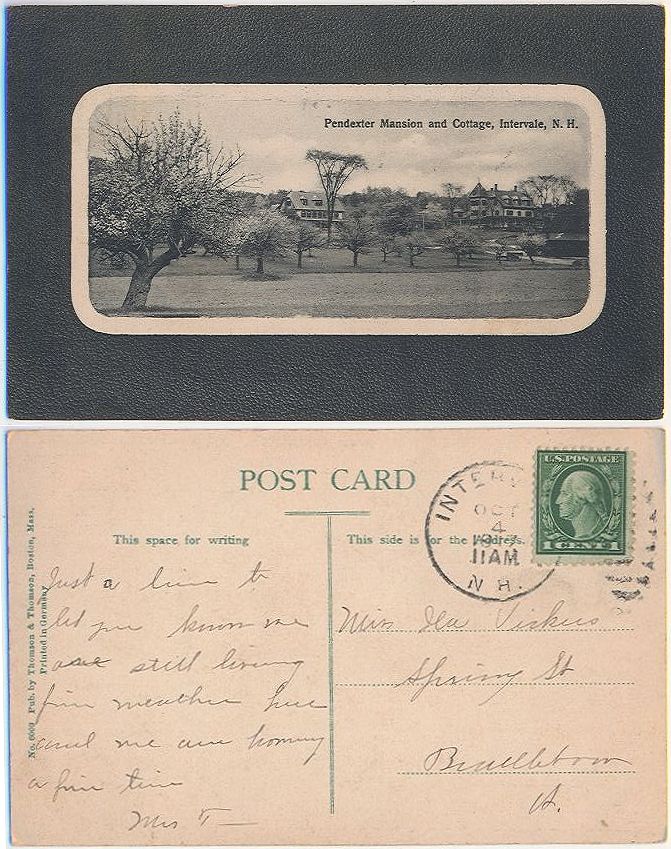 Pendexter Mansion and Cottage, Intervale, N. H.
POST CARD
This space for writing
This side is for the Address.
No. 6009 Pub. by Thomson & Thomson, Boston, Mass.
Printed in Germany
INTERV
OCT
4
11AM
N. H.
U.S. POSTAGE
1 CENT 1
Just a line to
let you know we
are still living
fine weather here
and we are having
a fine time
Mrs T
Miss Ila Vickers
Spring St
Brattleboro
Vt.